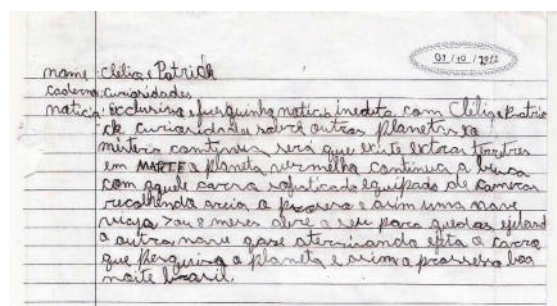 01/10/2012
nome: Clélia e Patrick
caderno: curiosidades
noticia: Exclusiva e fresquinha noticia inedita com Clélia e Patri
ck curiosidade sobre outros planetas
misterio continua será que existe extras terrestres
em MARTE o planeta vermelho continua a busca
com aquele carro sofisticado equipado de cameras
recolhendo areia o e asim uma nave
viaja 7 ou 8 meses abre a seu para quedas ejetand
o outra nave quase aterrisando esta o carro
que pesquisa o planeta e asim o prosseso boa
noite brasil.